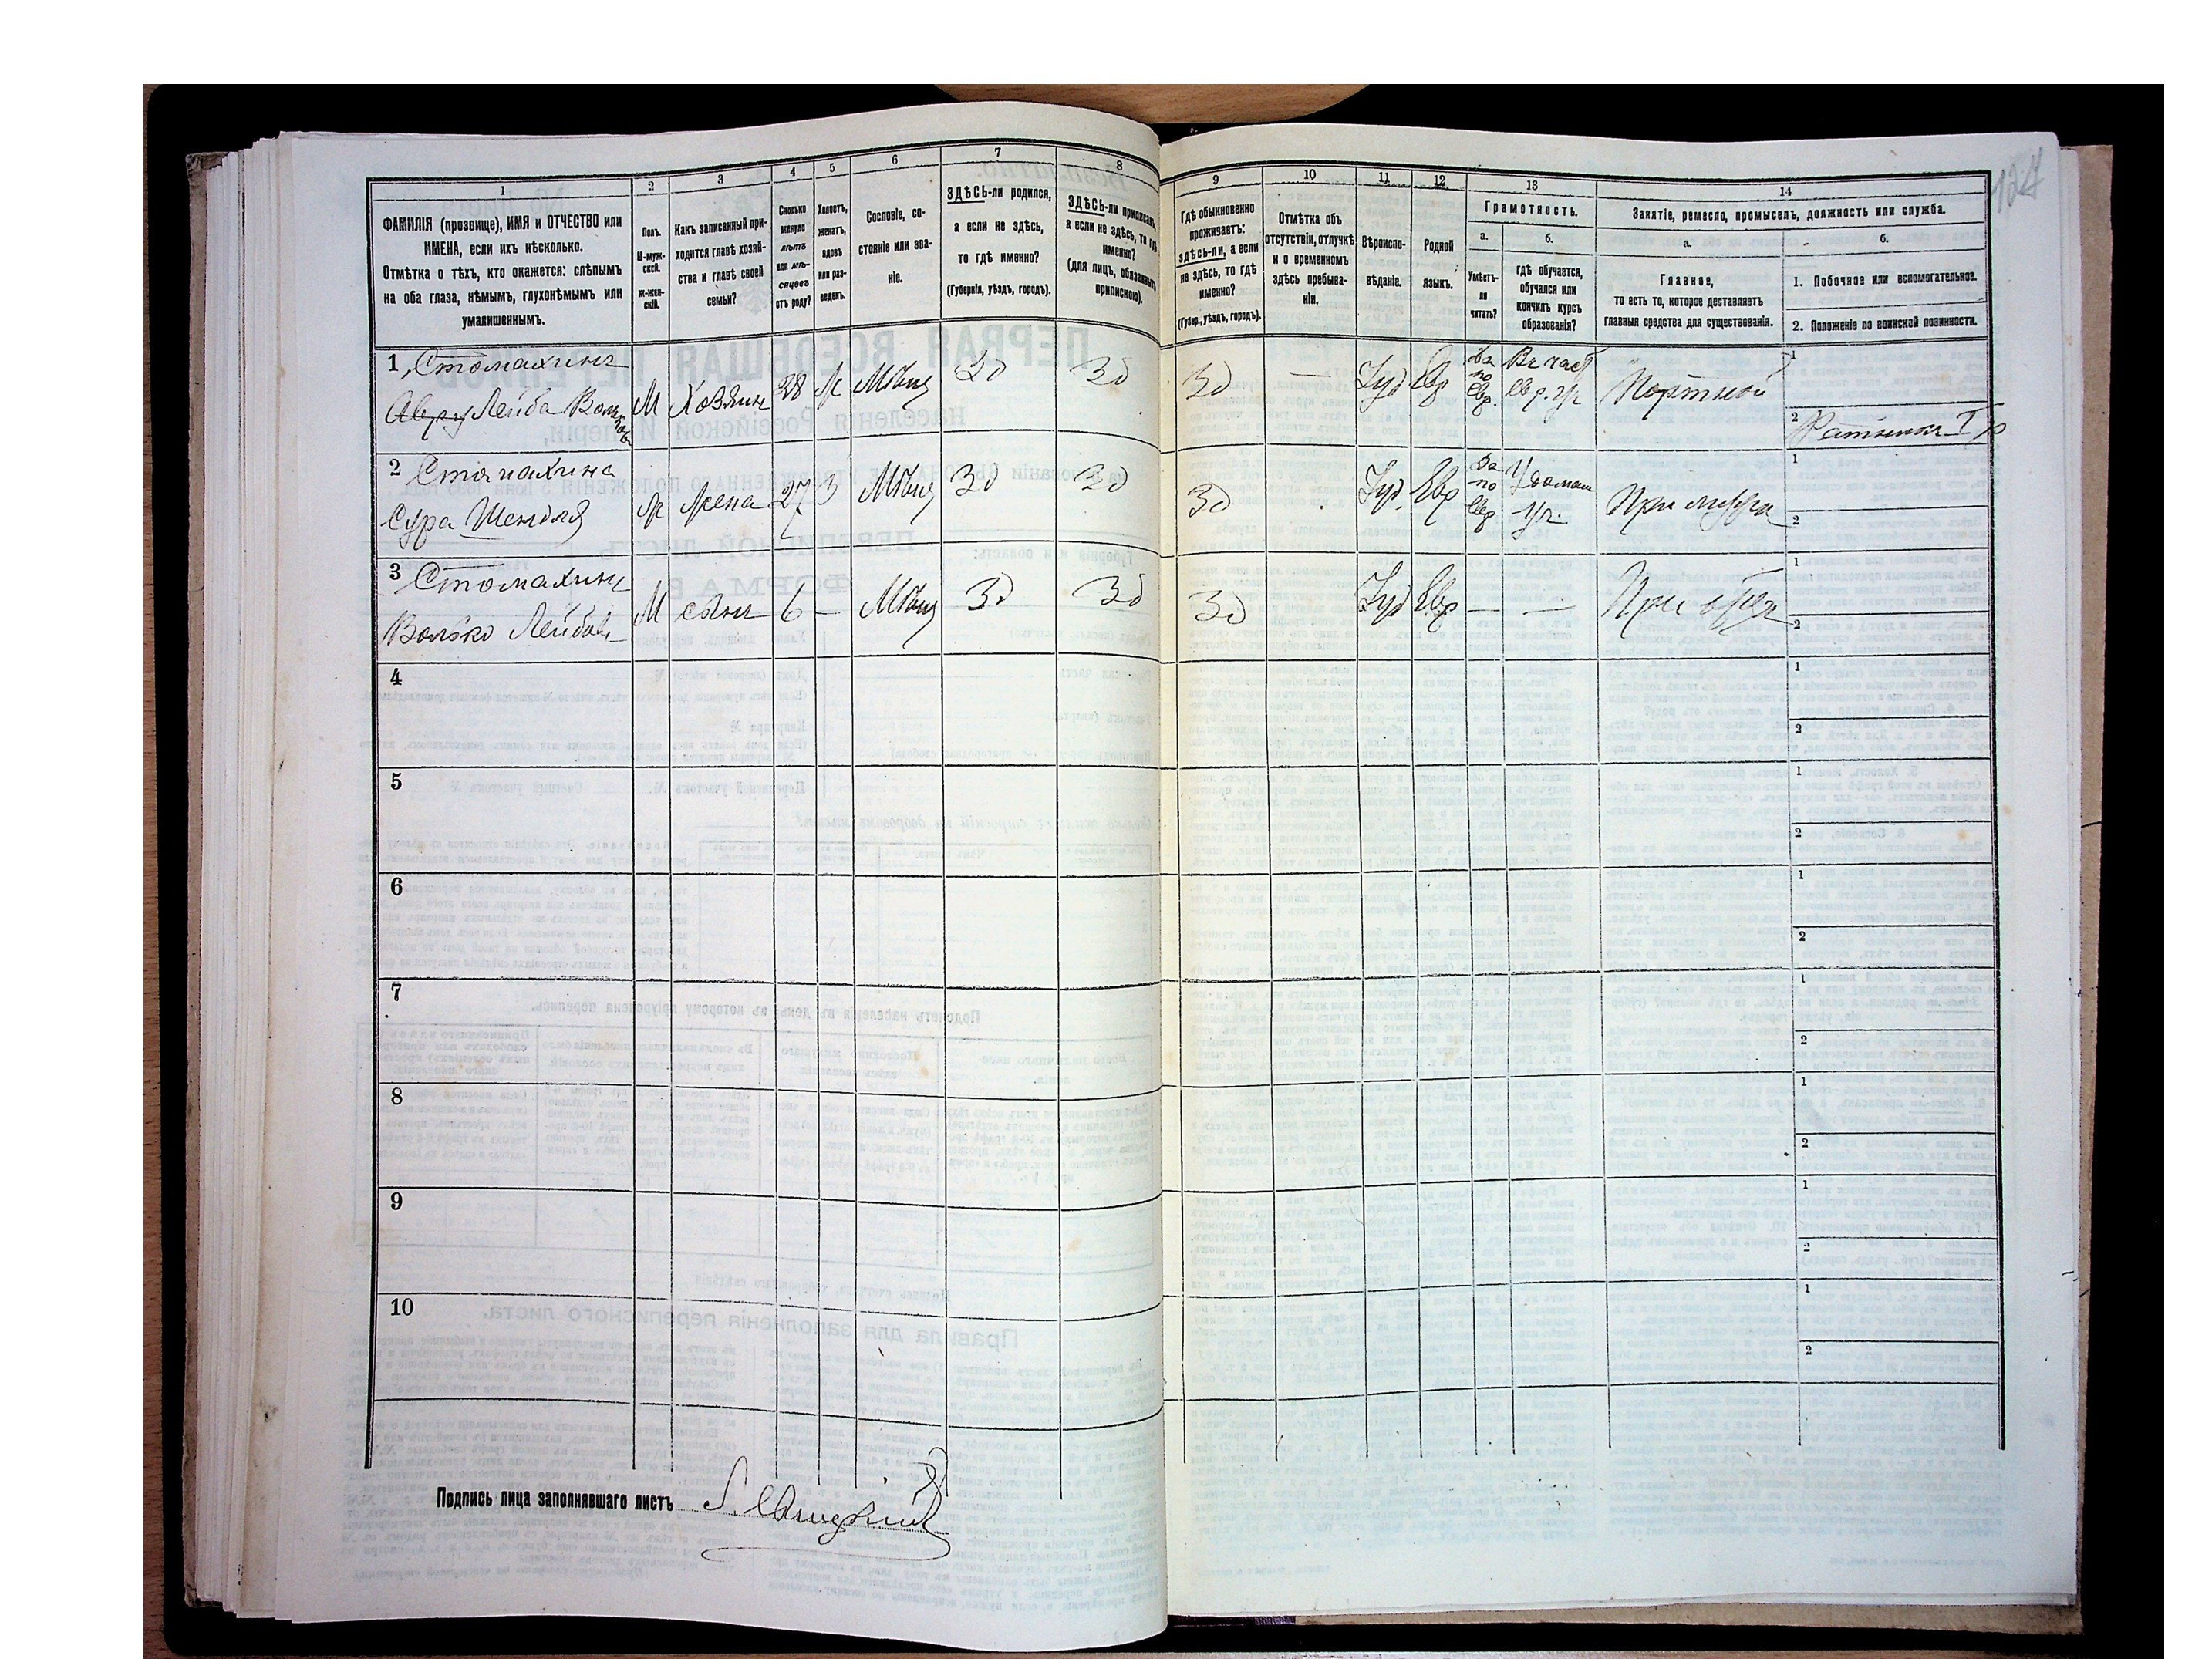 127
1
2
3
4
5
6
7
8
9
10
11
12
13
14
ФАМИЛІЯ (прозвище), ИМЯ и ОТЧЕСТВО или
ИМЕНА, если ихъ нѣсколько.
Отмѣтка о тѣхъ, кто окажется: слѣпымъ
на оба глаза, нѣмымъ, глухонѣмымъ или
умалишеннымъ.
Полъ.
М-муж-
ской.
Ж-жен-
скій.
Какъ записанный при-
ходится главѣ хозяй-
ства и главѣ своей
семьи?
Сколько
минуло
лѣтъ
или мѣ-
сяцевъ
отъ роду?
Холостъ,
женатъ,
вдовъ
или раз-
веденъ.
Сословіе, со-
стояніе или зва-
ніе.
ЗДѢСЬ-ли родился,
а если не здѣсь,
то гдѣ именно?
(Губернія, уѣздъ, городъ).
ЗДѢСЬ-ли приписанъ,
а если не здѣсь, то гдѣ
именно?
(для лицъ, обязанныхъ
припискою).
Гдѣ обыкновенно
проживаетъ:
здѣсь-ли, а если
не здѣсь, то гдѣ
именно?
(Губер., уѣздъ, городъ).
Отмѣтка объ
отсутствіи, отлучкѣ
и о временномъ
здѣсь пребыва-
ніи.
Вѣроиспо-
вѣданіе.
Родной
языкъ.
Грамотность.
а.
Умѣетъ-
ли
читать?
б.
гдѣ обучается,
обучался или
кончилъ курсъ
образованія?
Занятіе, ремесло, промыселъ, должность или служба.
а.
Главное,
то есть то, которое доставляетъ
главныя средства для существованія.
б.
1. Побочное или вспомогательное.
2. Положеніе по воинской повинности.
1 Стомахинъ
Лейба Вольковъ
М
Хозяинъ
28
Мѣщ
Зд
Зд
Зд
—
Іуд
Евр
Да по Евр.
Портной
1
2 Ратникъ I р
2 Стомахина
Сура Шендля
Ж
Жена
27
З
Мѣщ
Зд
Зд
Зд
Іуд.
Евр
Да по Евр
У домаш уч.
При мужѣ
1
2
3 Стомахинъ
Волько Лейбов
М
сынъ
6
—
Мѣщ
Зд
Зд
Зд
Іуд
Евр
—
—
При отцѣ
1
2
4
1
2
5
1
2
6
1
2
7
1
2
8
1
2
9
1
2
10
1
2
Подпись лица заполнявшаго листъ